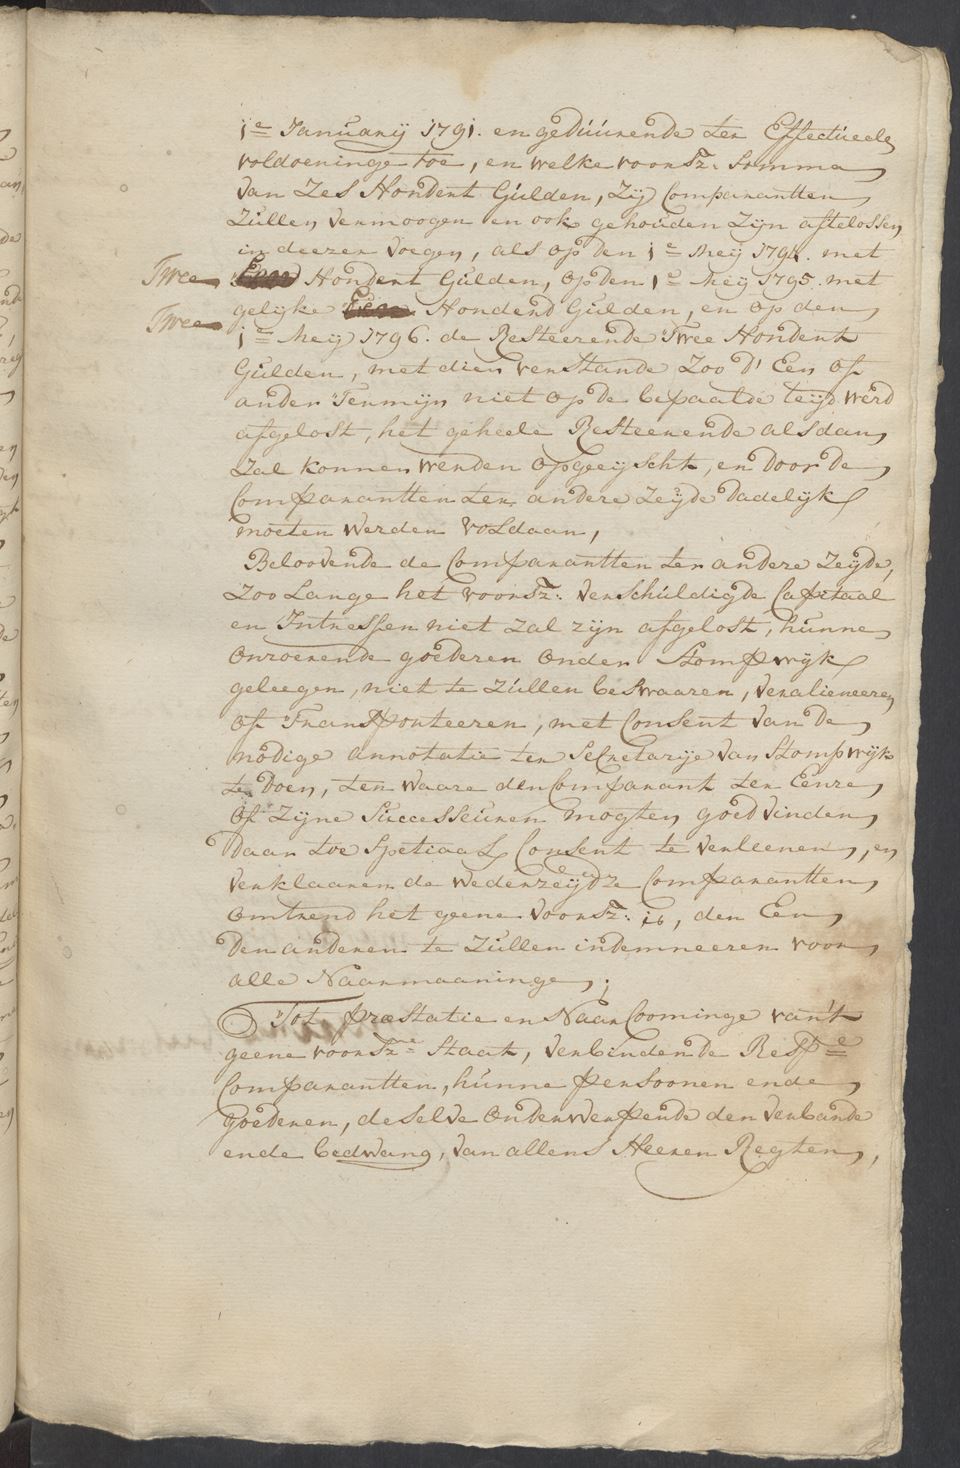 1e January 1791. en geduurende ter Effectueele
voldoeninge toe, en welke voorsz. Somma
van Zes Hondert Gulden, Zij Comparantten
Zullen vermoogen en ook gehouden Zijn aftelossen
in deezer voegen, als op den 1e Meij 1794. met
Twee Hondert Gulden, op den 1e Meij 1795. met
gelijke Twee Honderd Gulden, en op den
1e Meij 1796. de Resteerende Twee Hondert
Gulden, met dien verstande Zoo d' Een of
ander Termijn niet op de bepaalde teijd werd
afgelost, het geheele Resteerende alsdan
Zal konnen werden opgeeijscht, en door de
Comparantten ter andere Zeijde dadelijk
moeten werden voldaan,
Beloovende de Comparantten ter andere Zeijde,
Zoo Lange het voorsz: verschuldigde Capitaal
en Intressen niet Zal zijn afgelost, hunne
onroerende goederen onder Stompwijk
geleegen, niet te Zullen beswaaren, veralieneeren
of Transporteeren, met Consent van de
nodige annotatie ter Secretarije van Stompwijk
te Doen, ten waare den Comparant ter Eenre
of Zijne Successeuren mogten goedvinden
daar toe Spetiaal Consent te verleenen, en
verklaaren de wederzeijdze Comparantten
omtrend het geene voorsz: is, den Een
den anderen te Zullen indemneeren voor
alle Naarmaaninge,;
Tot præstatie en Naarcoominge van't
geene voorszne Staat, verbinden de Respe
Comparantten, hunne persoonen ende
goederen, deselve onderwerpende den verbande
ende bedwang, van allens Heeren Regten,